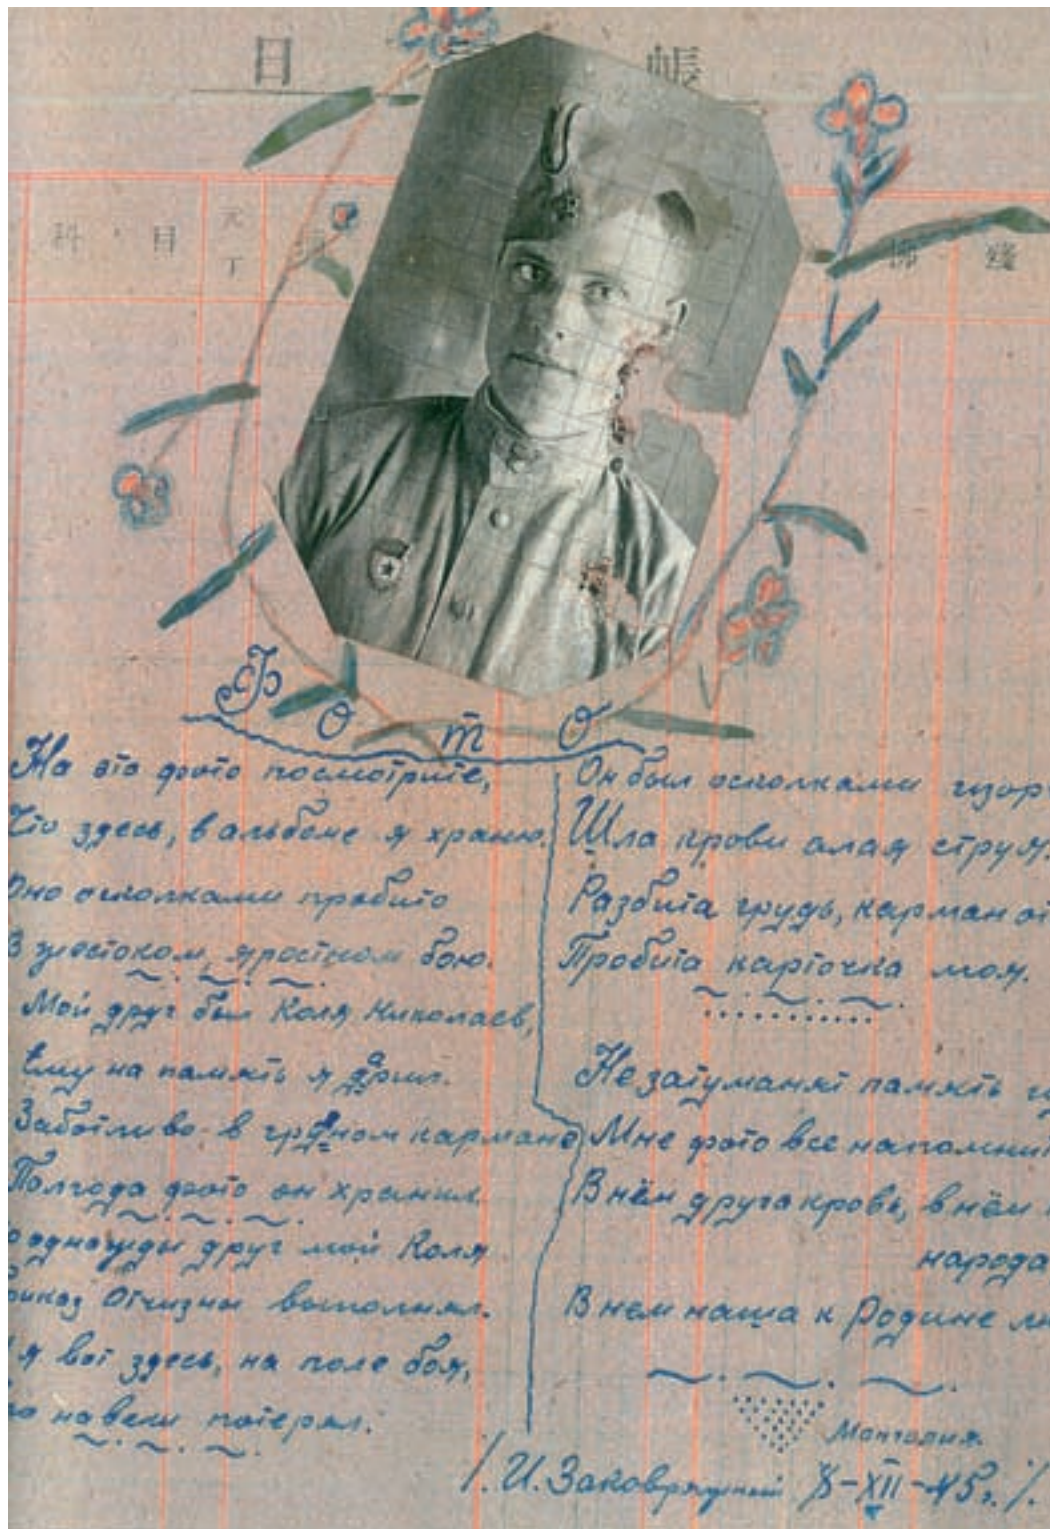 日 帳
科 目 元
丁
Фото
На это фото посмотрите,
Что здесь, в альбоме я храню.
Оно осколками пробито
В жестоком, яростном бою.
Мой друг был Коля Николаев,
Ему на память я дарил.
Заботливо в грудном кармане
Полгода фото он хранил.
однажды друг мой Коля
Отчизны выполнял.
я вот здесь, на поле боя,
навеки потерял.
Он был осколками
Шла крови алая струя.
Разбита грудь, карман
Пробита карточка моя.
Не затуманят память
Мне фото все
В нём друга кровь, в нём
народа
В нем наша к Родине
Монголия.
/. И. Заковряшин -XII-45г. /.